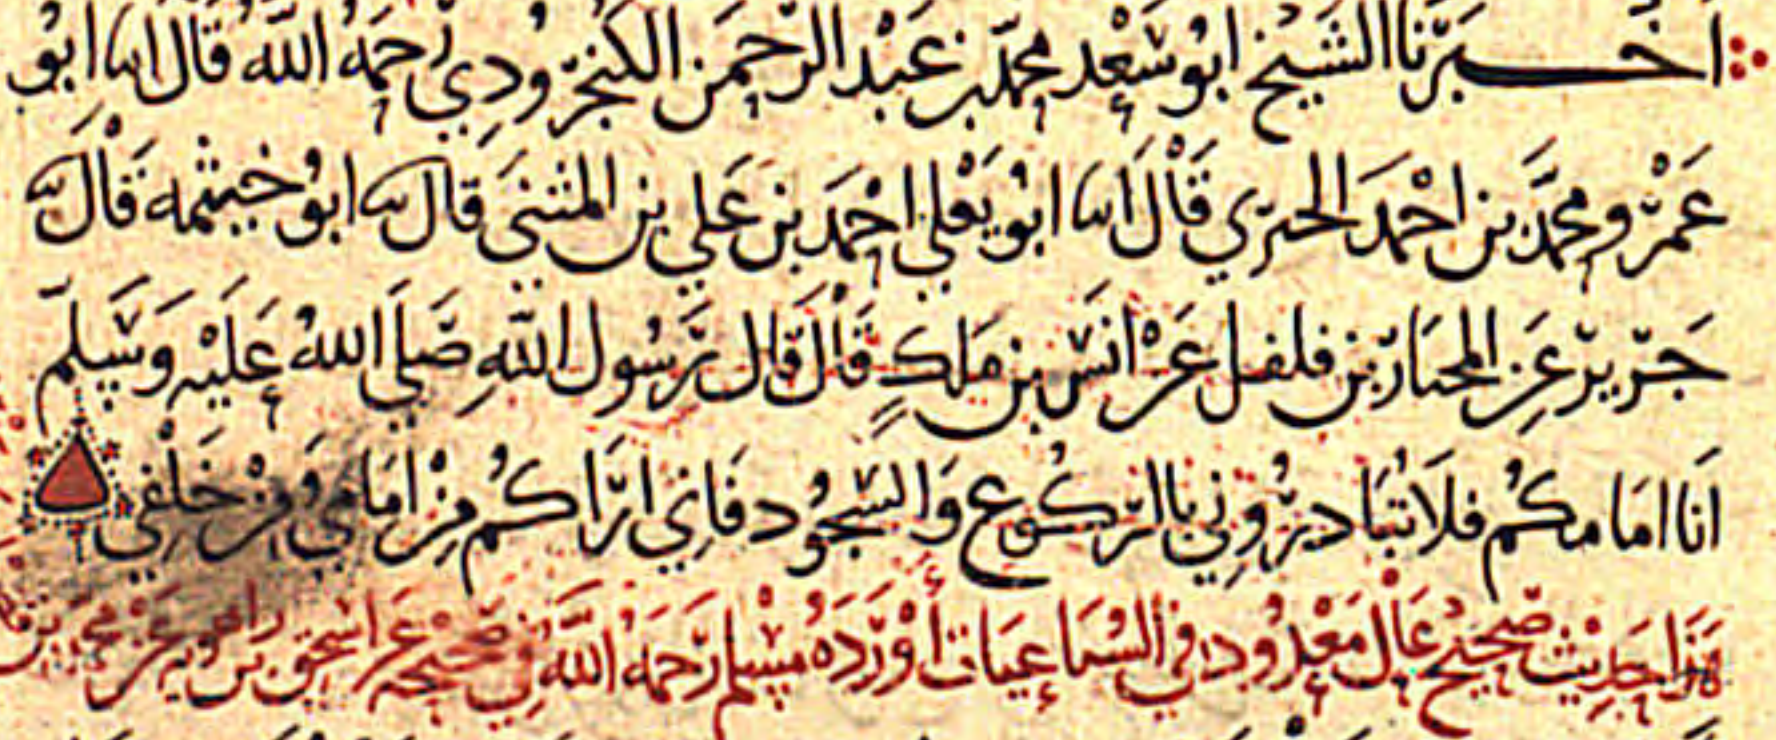 أخبرنا الشيخ ابو سعد محمد بن عبد الرحمن الكنجرودي رحمه الله قال انا ابو
عمرو محمد بن احمد الحيري قال انا ابو يعلي احمد بن علي بن المثني قال ثنا ابو خيثمه قال ثنا
جرير عن المختار بن فلفل عن انس بن ملك قال قال رسول الله صلي الله عليه وسلم
انا امامكم فلا تبادروني بالركوع والسجود فاني اراكم من امامي ومن خلفي
هذا حديث صحيح عال معدود في السماعيات أورده مسلم رحمه الله في صحيحه عن اسحق بن